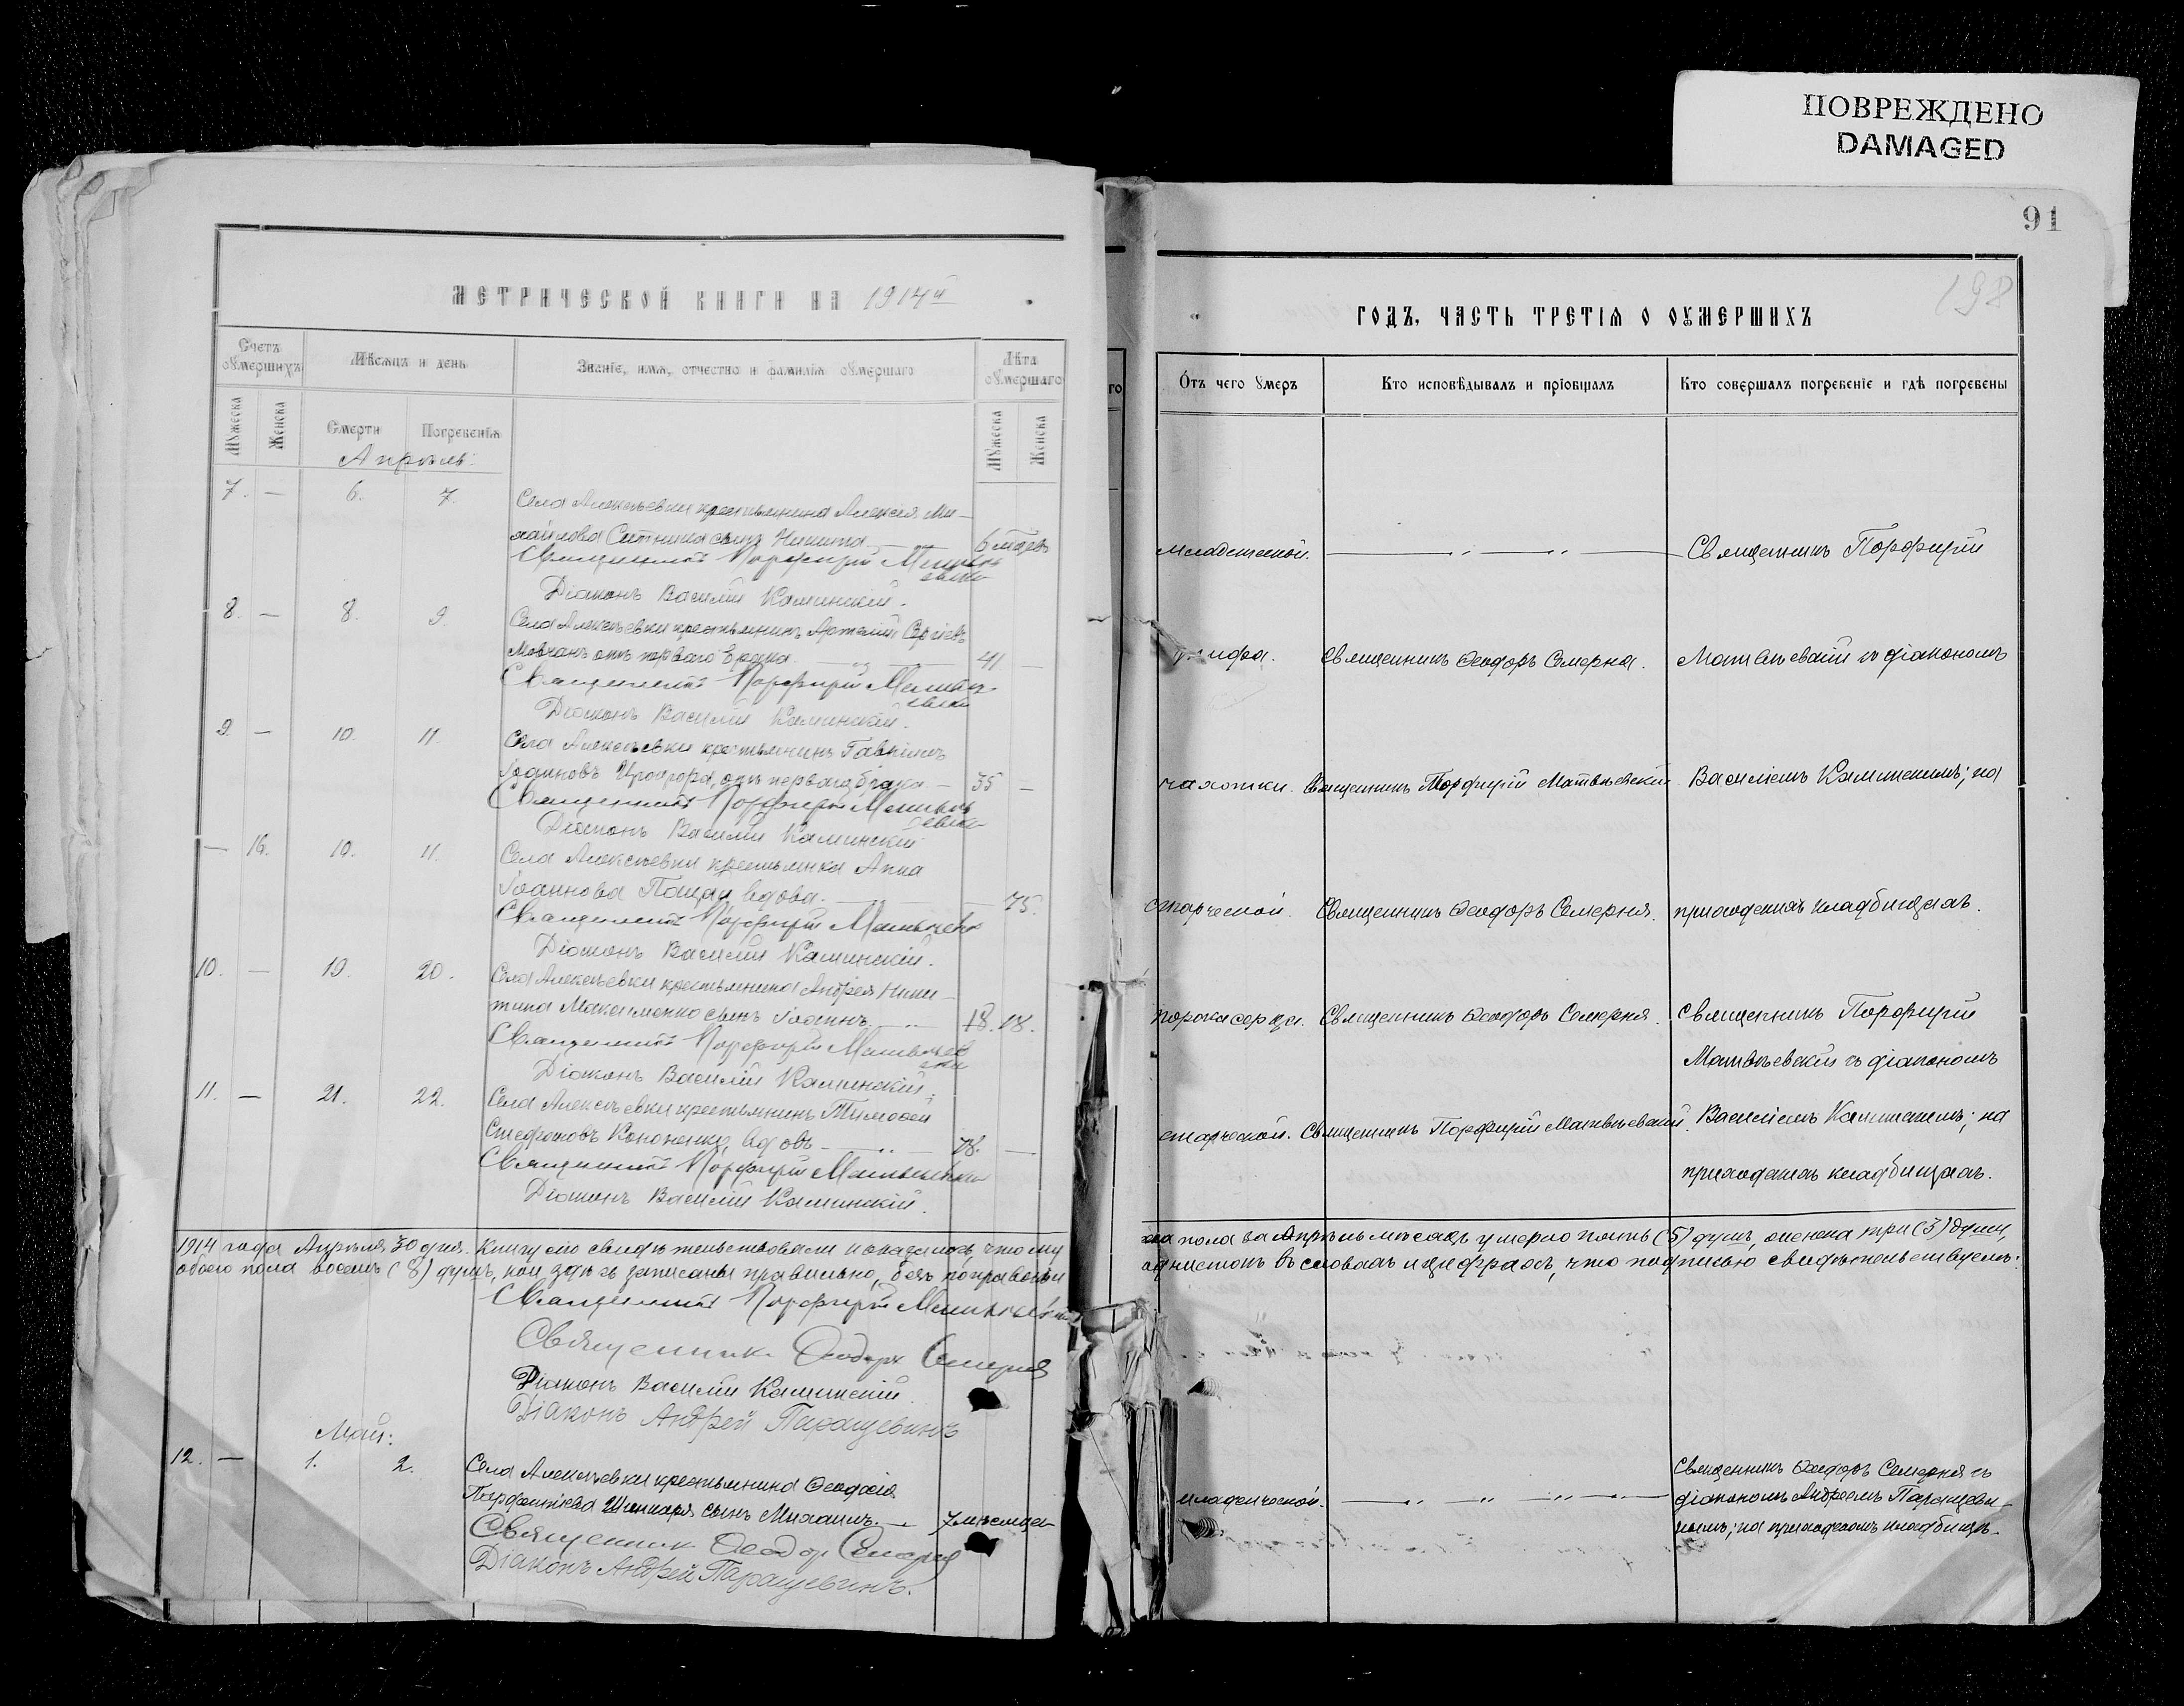 ПОВРЕЖДЕНО
DAMAGED
91
198
МЕТРИЧЕСКОЙ КНИГИ НА 1914й
ГОДЪ, ЧАСТЬ ТРЕТІѦ О ОУМЕРШИХЪ
Счетъ оумершихъ
Мѣсяцъ и день
Званіе, имя, отчество и фамилія оумершаго
Лѣта оумершаго
Мужеска
Женска
Смерти
Погребенія
Мужеска
Женска
Отъ чего умеръ
Кто исповѣдывалъ и пріобщалъ
Кто совершалъ погребеніе и гдѣ погребены
Апрѣль.
7. — 6. 7. Села Алексѣевки крестьянина Алексѣя Ми-
хайлова Ситника сынъ Никита 6
Священникъ Порфирій Матвѣевскій
Діаконъ Василій Каминскій.
младенческой. Священникъ Порфирій
8. — 8. 9. Села Алексѣевки крестьянинъ Сергіевъ
Мовчанъ отъ перваго брака. 41 —
Священникъ Порфирій Матвѣевскій
Діаконъ Василій Каминскій.
Священникъ Ѳеодоръ Семерня. Матвѣевскій съ діакономъ
9. — 10. 11. Села Алексѣевки крестьянинъ Гавріилъ
Іоанновъ перваго брака — 35 —
Священникъ Порфирій Матвѣевскій
Діаконъ Василій Каминскій
чахотки. Священникъ Порфирій Матвѣевскій Василіемъ Каминскимъ; на
— 10. 11. Села Алексѣевки крестьянка Анна
Іоаннова вдова. — 75.
Священникъ Порфирій Матвѣевскій
Діаконъ Василій Каминскій.
старческой. Священникъ Ѳеодоръ Семерня. приходскихъ кладбищахъ.
10. — 19. 20. Села Алексѣевки крестьянина Андрея Ники-
тина Макаименко сынъ Іоаннъ 18. 18.
Священникъ Порфирій Матвѣевскій
Діаконъ Василій Каминскій.
порока сердца. Священникъ Ѳеодоръ Семерня. Священникъ Порфирій
Матвѣевскій съ діакономъ
11. — 21. 22. Села Алексѣевки крестьянинъ Тимоѳей
Стефановъ Кононенко, вдовъ 78. —
Священникъ Порфирій Матвѣевскій
Діаконъ Василій Каминскій.
старческой. Священникъ Порфирій Матвѣевскій. Василіемъ Каминскимъ; на
приходскихъ кладбищахъ.
1914 года Апрѣля 30 дня. Книгу сію свидѣтельствовали и оказалось, что му
ска пола за Апрѣль мѣсяцъ умерло пять (5) душъ, а женска три (3) души,
обоего пола восемь (8) душъ, кои здѣсь записаны правильно, безъ поправокъ и
однистокъ въ словахъ и цифрахъ, что подписью свидѣтельствуемъ:
Священникъ Порфирій Матвѣевскій
Священникъ Ѳеодоръ Семерня
Діаконъ Василій Каминскій.
Діаконъ Андрей Паращевинъ
Май:
12. — 1. 2. Села Алексѣевки крестьянина Ѳеодосія
Парфентіева Шинкаря сынъ Михаилъ. — 7 мѣсяцев
Священникъ Ѳеодоръ Семерня
Діаконъ Андрей Паращевинъ.
младенческой. Священникъ Ѳеодоръ Семерня съ
діакономъ Андреемъ Паращеви-
нымъ; на приходскомъ кладбищѣ.